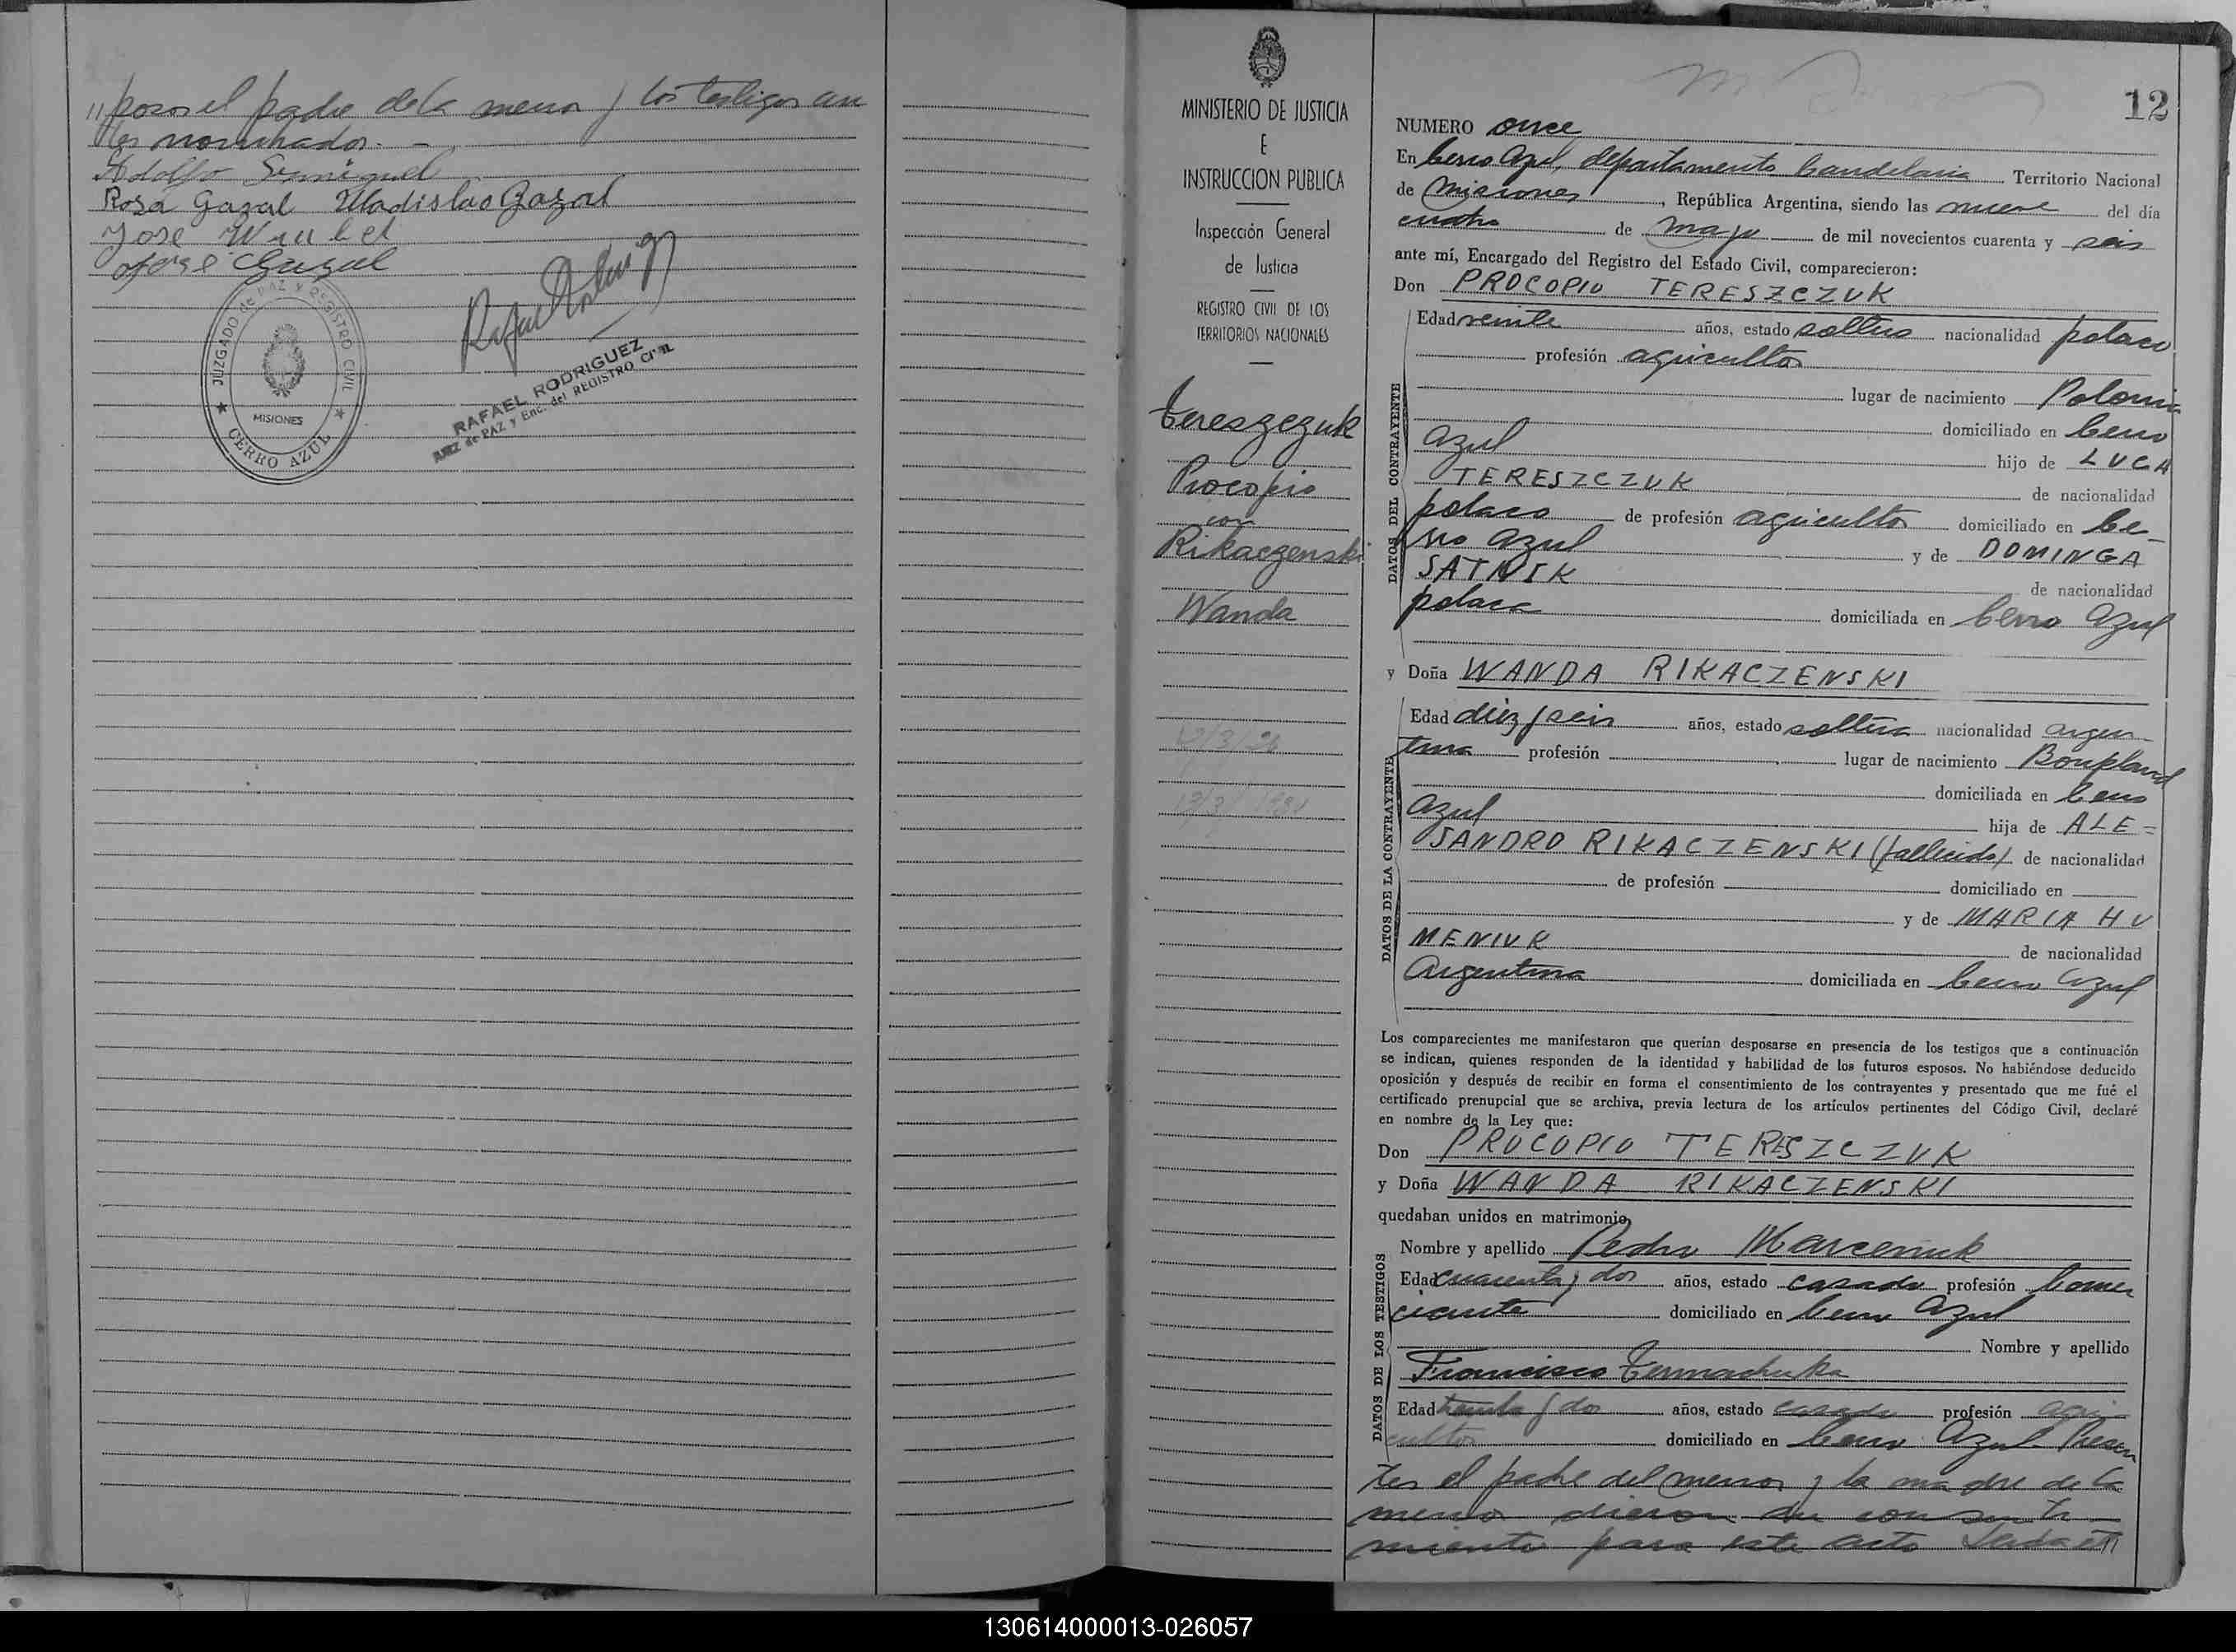 "posos el padre de la menor y los testigos an
tes nombrados. -
Adolfo
Rosa Gazal Uladislao Gazal
José Wrubel
Jorge
JUZGADO de PAZ Y REGISTRO CIVIL
MISIONES
★ CERRO AZUL ★
RAFAEL RODRIGUEZ
JUEZ de PAZ y Enc. del REGISTRO CIVIL
MINISTERIO DE JUSTICIA
E
INSTRUCCION PUBLICA
Inspección General
de Justicia
REGISTRO CIVIL DE LOS
TERRITORIOS NACIONALES
Tereszczuk
Procopio
con
Rikaczenski
Wanda
12
NUMERO once
En Cerro Azul, departamento Candelaria Territorio Nacional
de Misiones, República Argentina, siendo las nueve del día
cuatro de mayo de mil novecientos cuarenta y seis
ante mí, Encargado del Registro del Estado Civil, comparecieron:
Don PROCOPIO TERESZCZUK
DATOS DEL CONTRAYENTE
Edad veinte años, estado soltero nacionalidad polaco
profesión agricultor
lugar de nacimiento Polonia
domiciliado en Cerro
Azul
hijo de LUCA
TERESZCZUK
de nacionalidad
polaco de profesión agricultor domiciliado en Ce-
rro Azul y de DOMINGA
de nacionalidad
polaca domiciliada en Cerro Azul
y Doña WANDA RIKACZENSKI
DATOS DE LA CONTRAYENTE
Edad diez y seis años, estado soltera nacionalidad argen-
tina profesión lugar de nacimiento Bonpland
domiciliada en Cerro
Azul hija de ALE=
JANDRO RIKACZENSKI (fallecido) de nacionalidad
de profesión domiciliado en
y de MARIA HU
MENIUK
de nacionalidad
Argentina domiciliada en Cerro Azul
Los comparecientes me manifestaron que querían desposarse en presencia de los testigos que a continuación
se indican, quienes responden de la identidad y habilidad de los futuros esposos. No habiéndose deducido
oposición y después de recibir en forma el consentimiento de los contrayentes y presentado que me fué el
certificado prenupcial que se archiva, previa lectura de los artículos pertinentes del Código Civil, declaré
en nombre de la Ley que:
Don PROCOPIO TERESZCZUK
y Doña WANDA RIKACZENSKI
quedaban unidos en matrimonio,
DATOS DE LOS TESTIGOS
Nombre y apellido Pedro Marceniuk
Edad cuarenta y dos años, estado casado profesión Comer
ciante domiciliado en Cerro Azul
Nombre y apellido
Francisco
Edad treinta y dos años, estado casado profesión agri
cultor domiciliado en Cerro Azul. Presen
tes el padre del menor y la madre de la
menor dieron su consenti-
miento para este acto Leída el
130614000013-026057